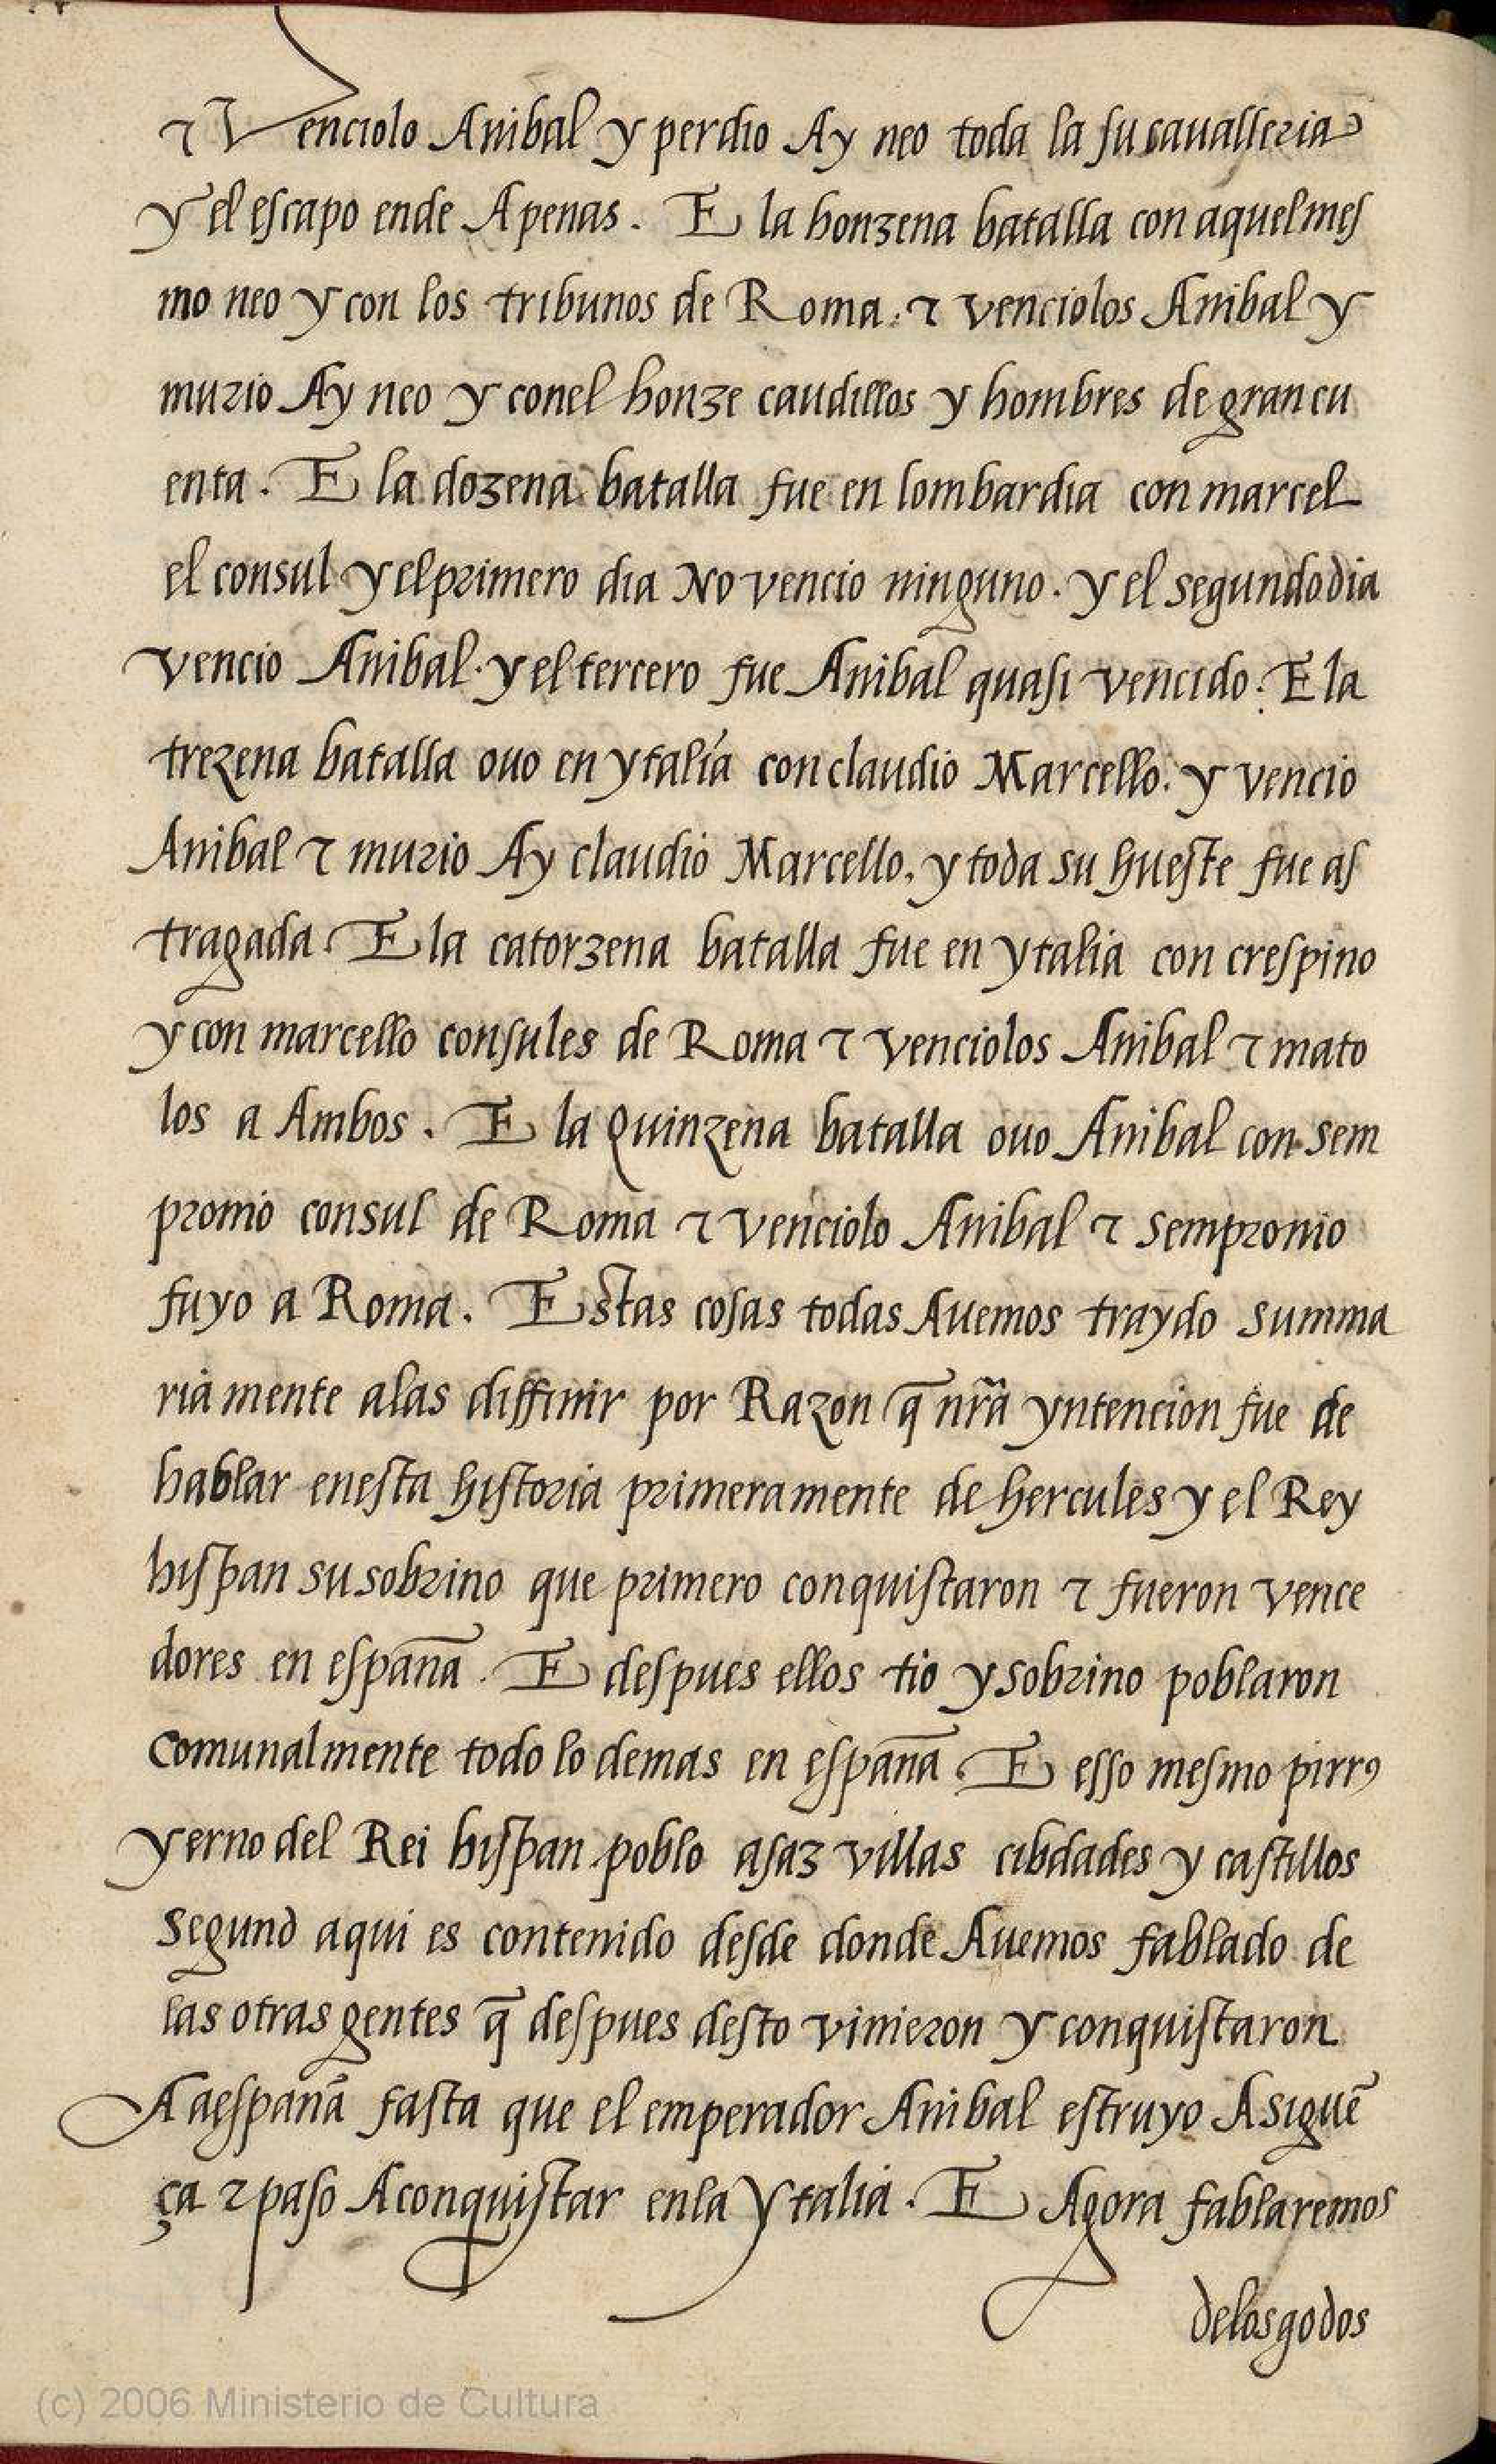 ⁊ Venciolo Anibal y perdio Ay neo toda la su cavalleria
y el escapo ende Apenas. E la honzena batalla con aquel mes
mo neo y con los tribunos de Roma. ⁊ venciolos Anibal y
murio Ay neo y conel honze caudillos y hombres de gran cu
enta. E la dozena batalla fue en lombardia con marcel
el consul y el primero dia No vencio ninguno. y el segundo dia
vencio Anibal. y el tercero fue Anibal quasi vencido. E la
trezena batalla ouo en ytalia con claudio Marcello. y vencio
Anibal ⁊ murio Ay claudio Marcello, y toda su hueste fue as
tragada. E la catorzena batalla fue en ytalia con crespino
y con marcello consules de Roma ⁊ venciolos Anibal ⁊ mato
los a Ambos. E la Quinzena batalla ouo Anibal con sem
pronio consul de Roma ⁊ venciolo Anibal ⁊ sempronio
fuyo a Roma. Estas cosas todas Auemos traydo summa
ria mente alas diffinir por Razon q̄ nr̃a yntencion fue de
hablar enesta historia primeramente de hercules y el Rey
hispan su sobrino que primero conquistaron ⁊ fueron vence
dores en españa. E despues ellos tio y sobrino poblaron
comunalmente todo lo demas en españa. E esso mesmo pirrꝰ
yerno del Rei hispan poblo asaz villas cibdades y castillos
segund aqui es contenido desde donde Auemos fablado de
las otras gentes q̄ despues desto vinieron y conquistaron
A aespaña fasta que el emperador Anibal estruyo A siguẽ
ça ⁊ paso A conquistar enla ytalia. E Agora fablaremos
delos godos
(c) 2006 Ministerio de Cultura